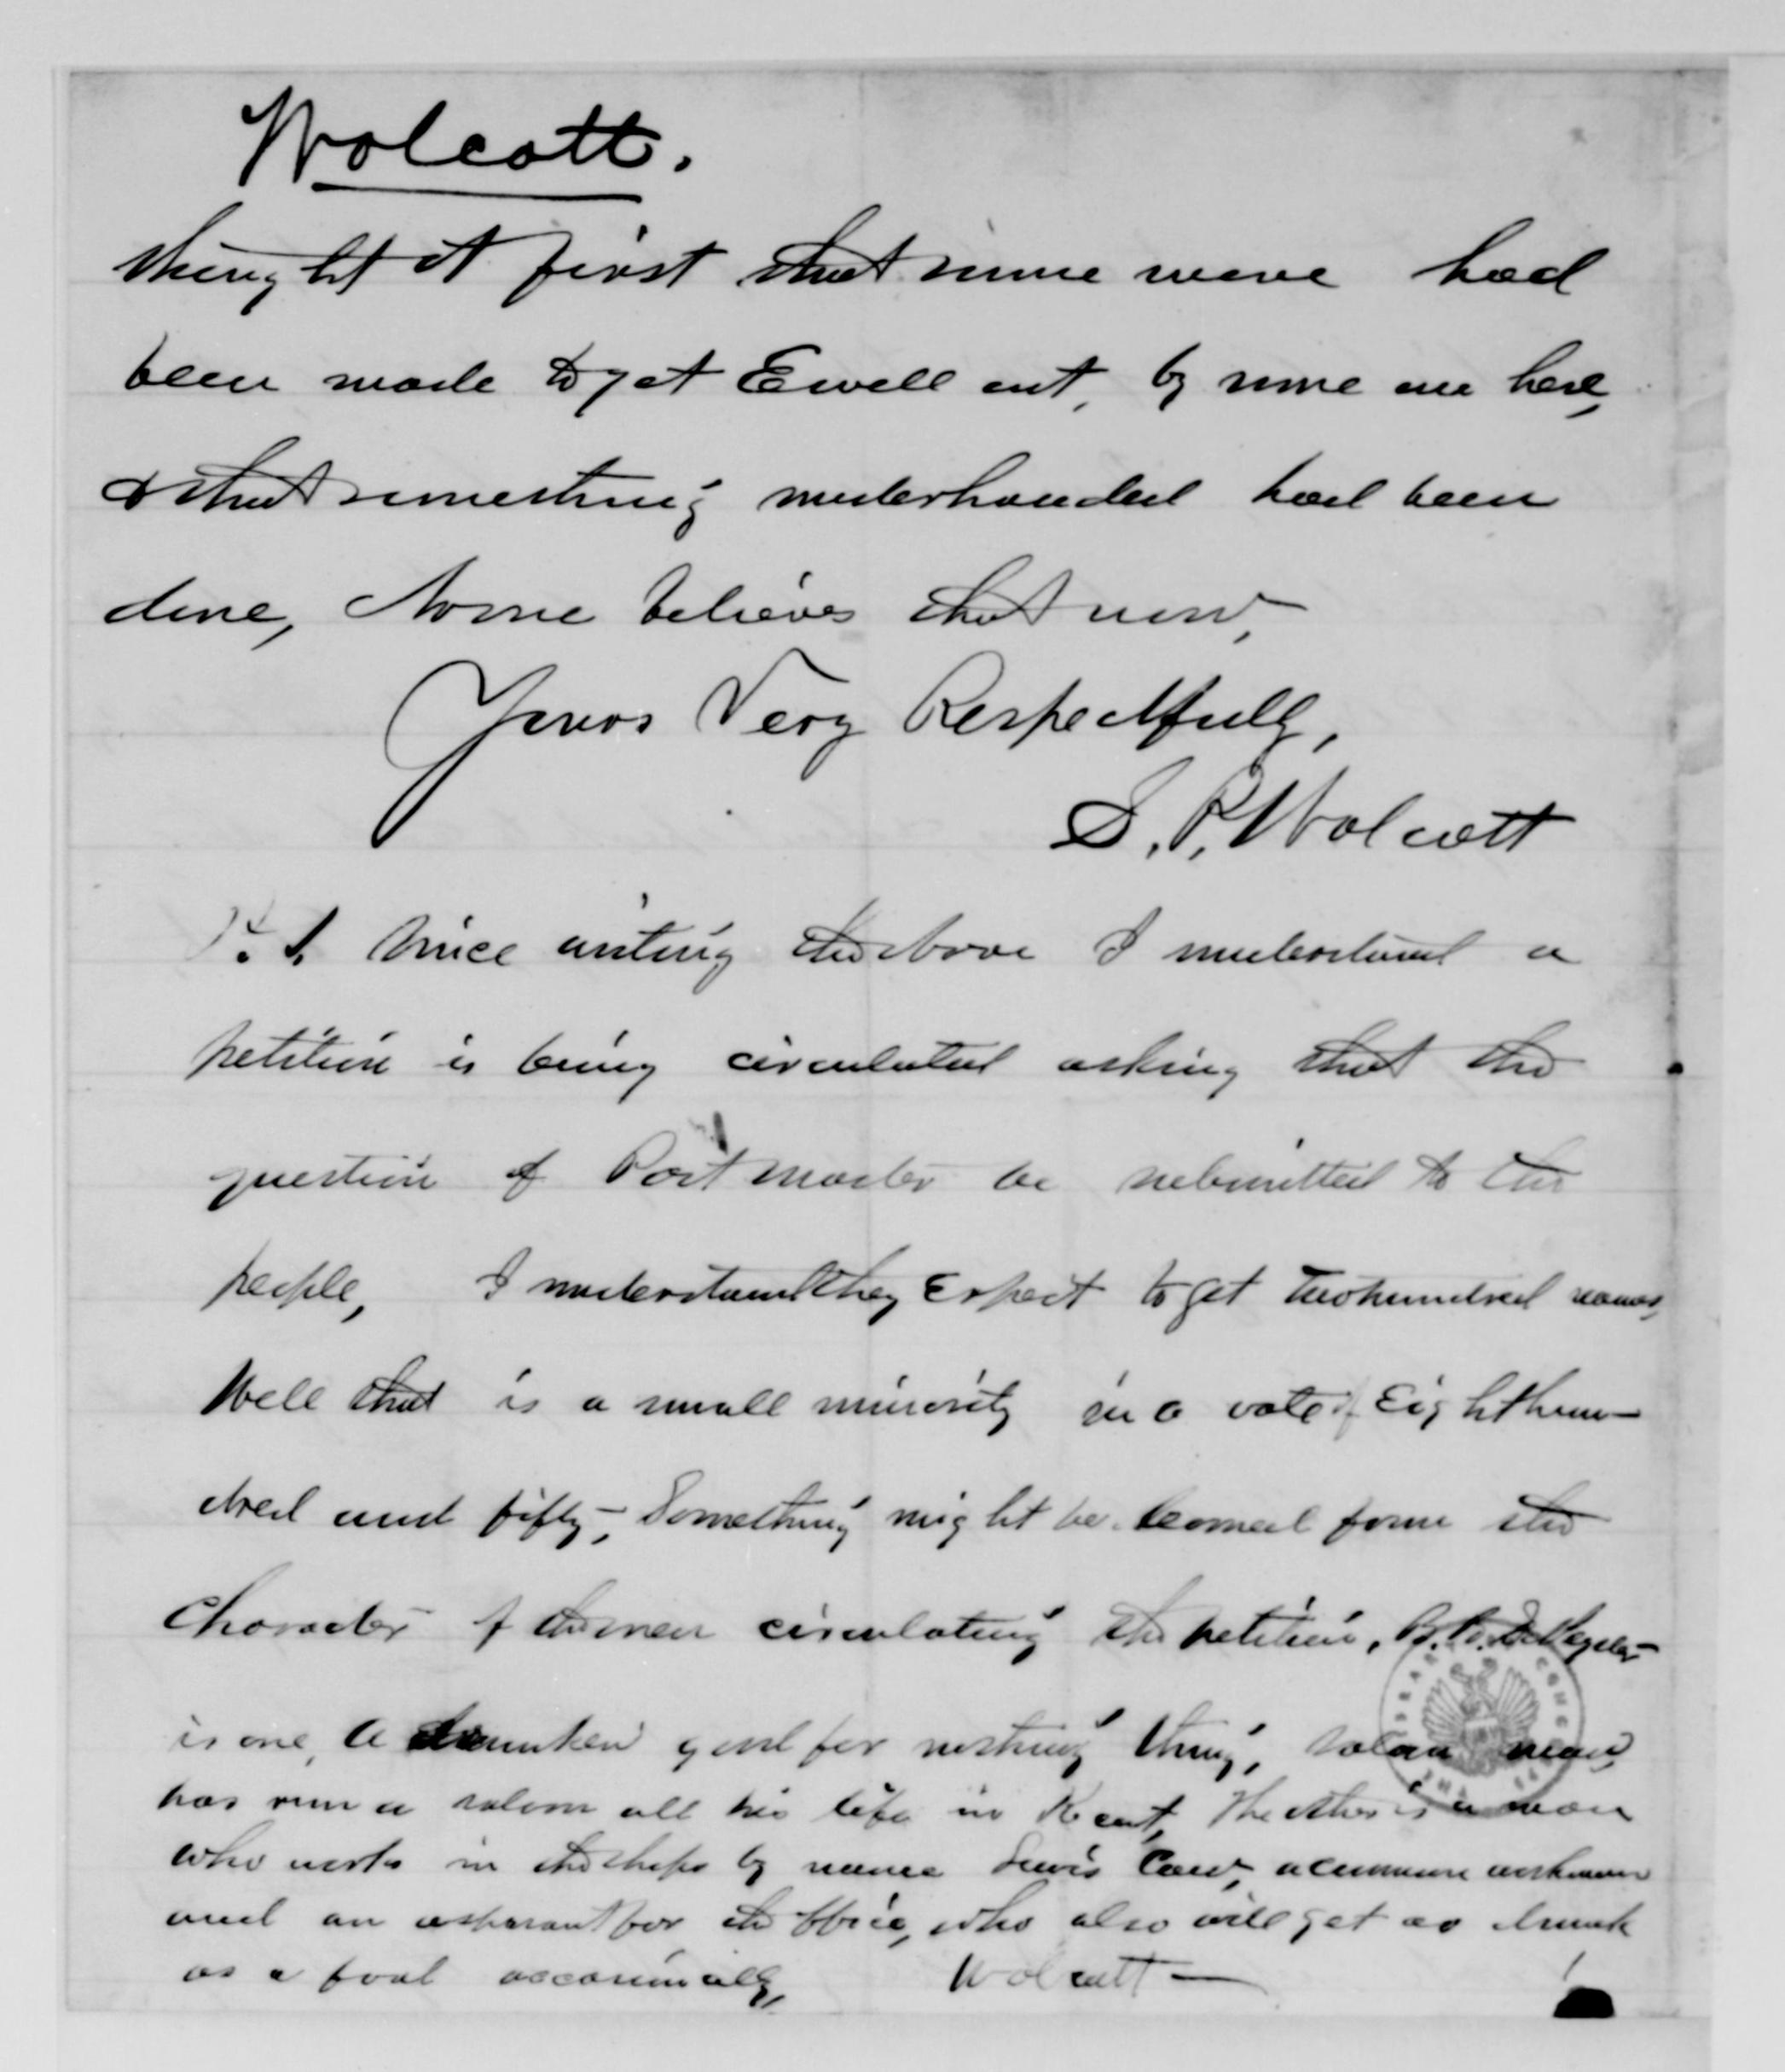 Wolcott.
thought at first that some move had
been made to get Ewell out, by some one here,
& that something underhanded had been
done, None believes that now,
Yours Very Respectfully,
S. P. Wolcott
P. S. Since writing the above I understand a
petition is being circulated asking that the
question of Post Master be submitted to the
people, I understand they Expect to get two hundred names,
Well that is a small minority in a vote of Eight hun-
dred and fifty, Something might be learned from the
Character of the men circulating the petition,
is one, A drunken good for nothing thing, Saloon man,
has run a saloon all his life in Kent, The other is a man
who works in the shops by name Lewis a common workman
and an aspirant for the office, who also will get as drunk
as a fool occasionally, Wolcott